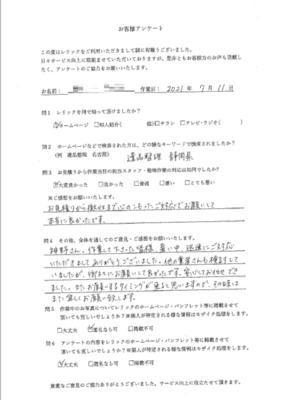 お客様アンケート
この度はレリックをご利用いただきまして誠に有難うございました。
日々サービス向上に取組ませていただいておりますが、是非ともお客様方のお声も頂戴し
たく、アンケートのご協力をお願いいたします。
お名前: 作業日: 2021年 7月 11日
問1 レリックを何で知って頂けましたか?
☑ホームページ □知人紹介( 様) □チラシ □テレビ・ラジオ( )
問2 ホームページなどで検索された方は、どの様なキーワードで検索されましたか?
(例 遺品整理 名古屋) 遺品整理 静岡県
問3 お見積りから作業当日の担当スタッフ・現場作業の対応は如何でしたか?
☑大変良かった □良かった □普通 □悪い □とても悪い
※ご感想をお願いいたします。
お見積りから 心のこもったご対応でお願いして
本当に良かったです。
問4 その他、全体を通してのご意見・ご感想をお願いいたします。
作業して下さった皆様、暑い中、迅速にご対応
いただきまして ありがとうございました。他の業者さんも検討して
いましたが、 お願いして良かったです。安心してお任せでき
ました。またお願いするタイミングが 思いますので、その時は
また宜しくお願い致します。
問5 作業中のお写真についてレリックのホームページ・パンフレット等に掲載させて
頂いても宜しいでしょうか?※個人が特定される様な情報はモザイク処理をします。
□大丈夫 ☑匿名なら可 □掲載不可
問6 アンケートの内容をレリックのホームページ・パンフレット等に掲載させて
頂いても宜しいでしょうか?※個人が特定される様な情報はモザイク処理をします。
□大丈夫 ☑匿名なら可 □掲載不可
貴重なご意見のご協力ありがとうございました。サービス向上に役立たせて頂きます。